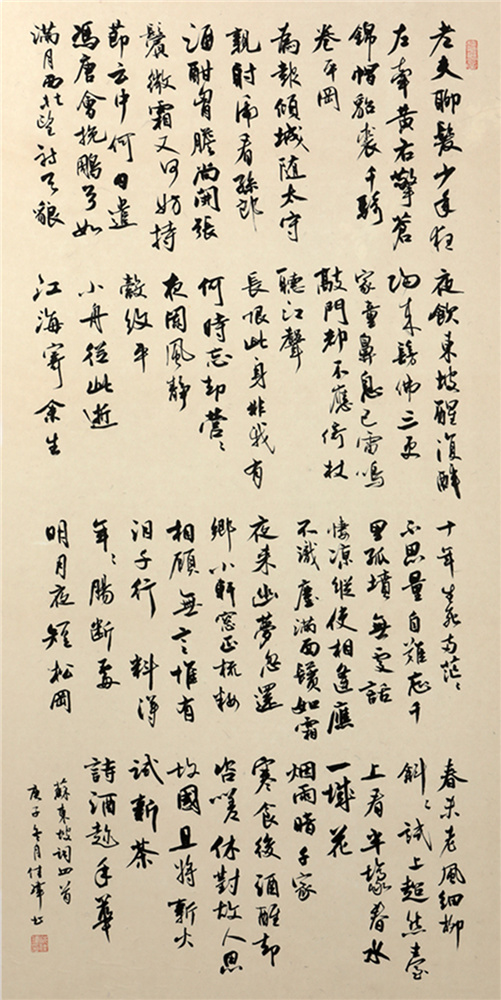 老夫聊發少年狂
左牽黃右擎蒼
錦帽貂裘千騎
卷平岡
為報傾城隨太守
親射虎看孫郎
酒酣胸膽尚開張
鬢微霜又何妨持
節云中何日遣
馮唐會挽鵰弓如
滿月西北望射天狼
夜飲東坡醒復醉
歸來髣佛三更
家童鼻息已雷鳴
敲門都不應倚杖
聽江聲
長恨此身非我有
何時忘却營〻
夜闌風靜
縠紋平
小舟從此逝
江海寄余生
十年生死兩茫〻
不思量自難忘千
里孤墳無處話
悽涼縱使相逢應
不識塵滿面鬢如霜
夜來幽夢忽還
鄉小軒窓正梳妝
相顧無言惟有
淚千行 料得
年〻腸斷處
明月夜短松岡
春未老風細柳
斜〻試上超然臺
上看半壕春水
一城花
烟雨暗千家
寒食後酒醒却
咨嗟休對故人思
故國且將新火
試新茶
詩酒趁年華
蘇東坡詞四首
庚子冬月